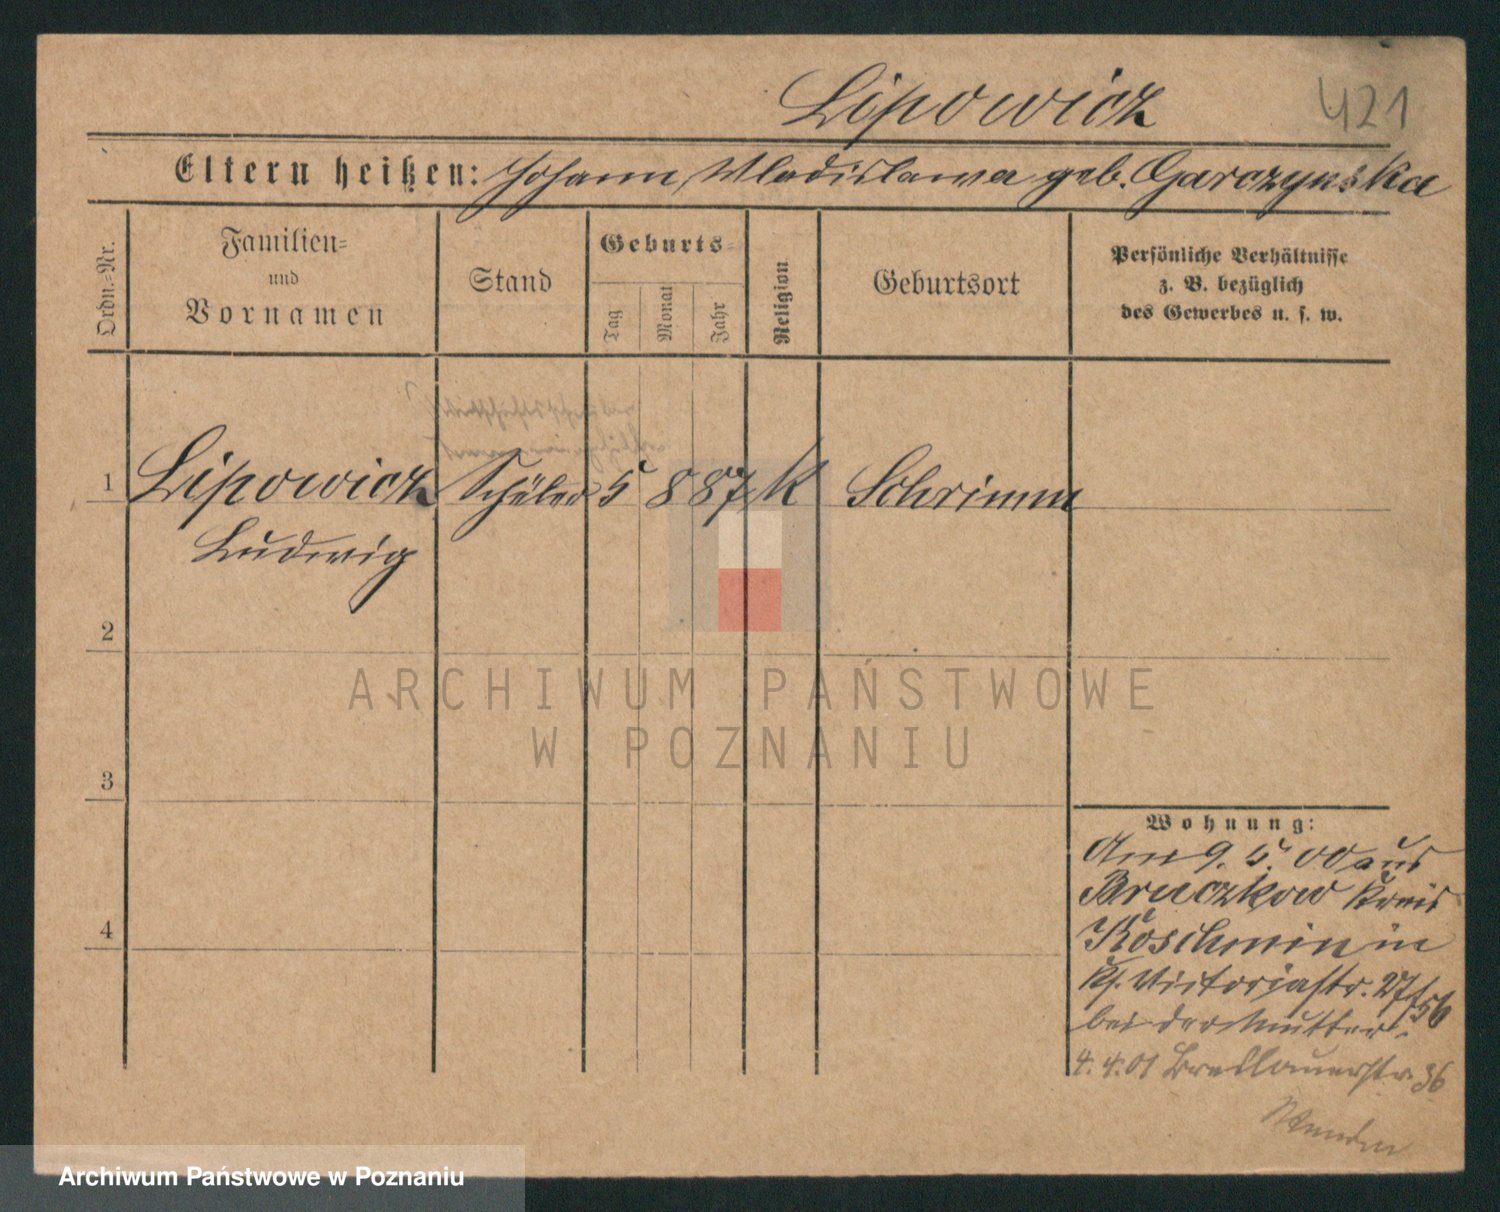 Lipowicz
421
Eltern heißen: Johann, Wladislawa geb. Garczynska
Ordn.-Nr.
Familien-
und
Vornamen
Stand
Geburts-
Tag
Monat
Jahr
Religion
Geburtsort
Persönliche Verhältnisse
z. B. bezüglich
des Gewerbes u. s. w.
1 Lipowicz Schüler 5 8 87 K Schrimm
Ludwig
2
3
4
Wohnung:
Am 9. 5. 00 aus
Bruczkow Kreis
Koschmin in
Victoriastr. 27
bei der Mutter.
4. 4. 01 Breslauerstr. 36
Wenden
ARCHIWUM PAŃSTWOWE
W POZNANIU
Archiwum Państwowe w Poznaniu